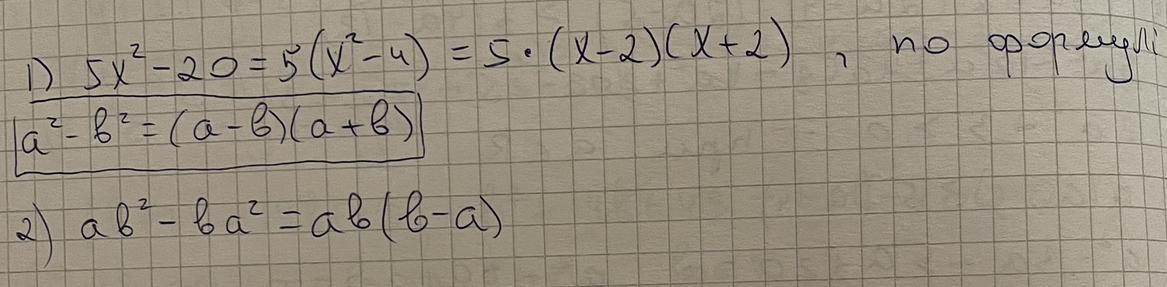 1) 5x² - 20 = 5(x² - 4) = 5 · (x - 2)(x + 2) , по формулі
a² - b² = (a - b)(a + b)
2) ab² - ba² = ab(b - a)